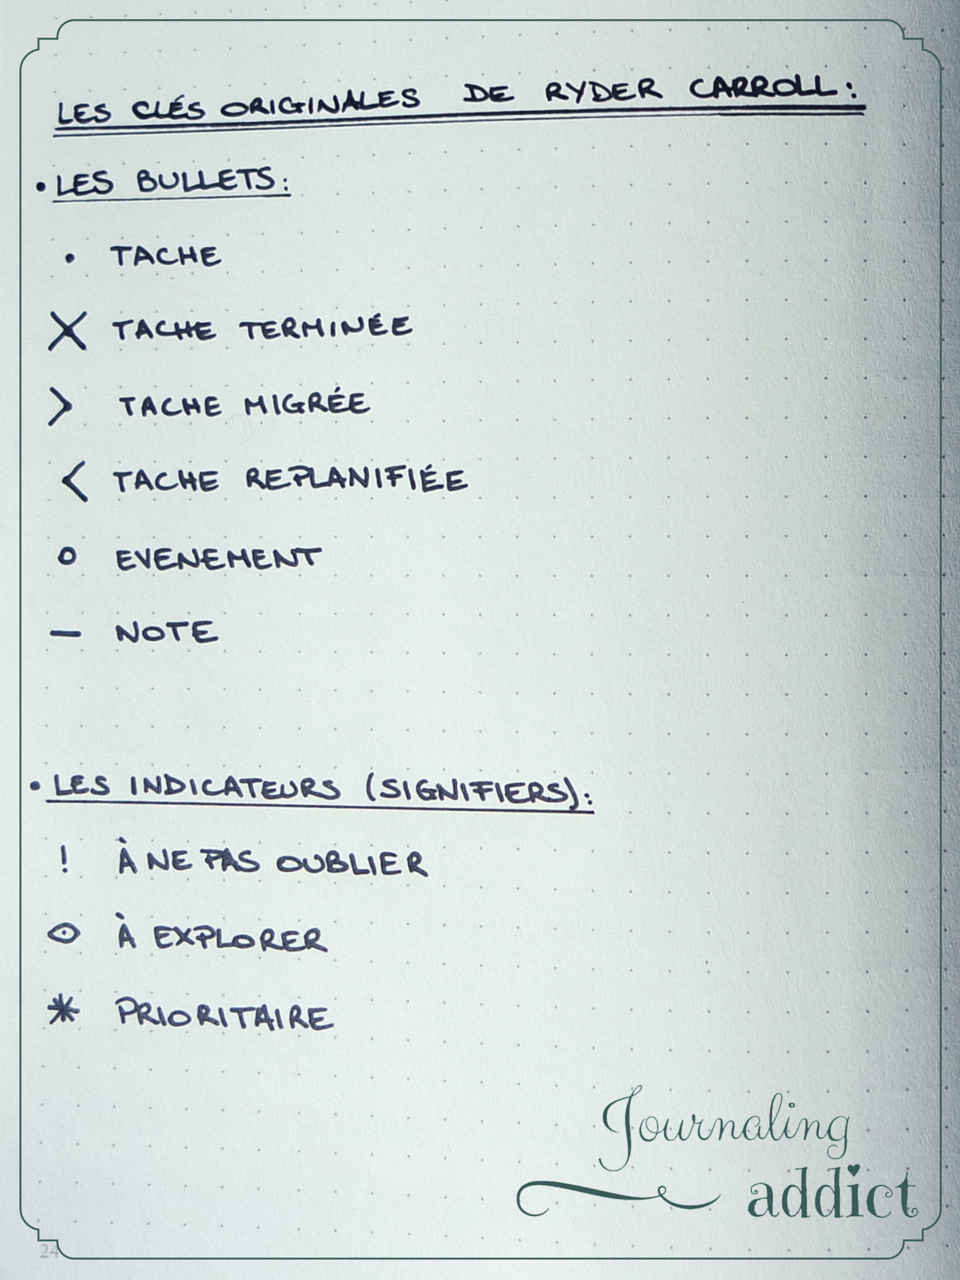 LES CLÉS ORIGINALES DE RYDER CARROLL :
• LES BULLETS :
• TACHE
X TACHE TERMINÉE
> TACHE MIGRÉE
< TACHE REPLANIFIÉE
o EVENEMENT
— NOTE
• LES INDICATEURS (SIGNIFIERS) :
! À NE PAS OUBLIER
À EXPLORER
* PRIORITAIRE
Journaling
addict
24